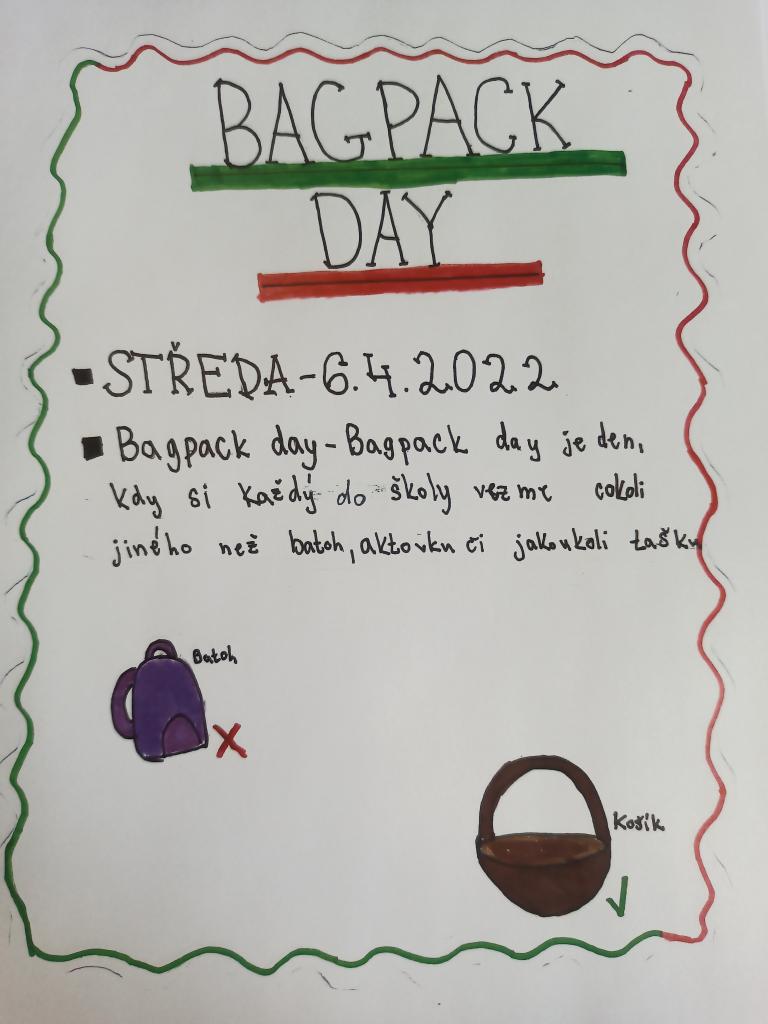 BAGPACK
DAY
STŘEDA-6.4.2022
Bagpack day-Bagpack day je den,
kdy si každý do školy vezme cokoli
jiného než batoh, aktovku či jakoukoli tašku
Batoh
X
Košík